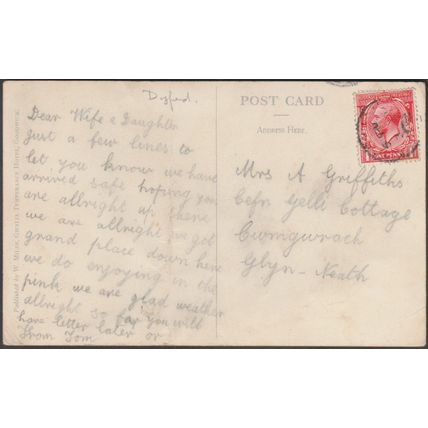 Dear Wife & Daughter
Just a few lines to
let you know we have
arrived safe hoping you
are allright up there
we are allright we got
grand place down here
we do enjoying in the
pink we are glad weather
allright so far you will
have letter later or
From Tom
POST CARD
Address Here.
Mrs A Griffiths
Cefn Gelli Cottage
Cwmgwrach
Glyn-Neath
ONE PENNY